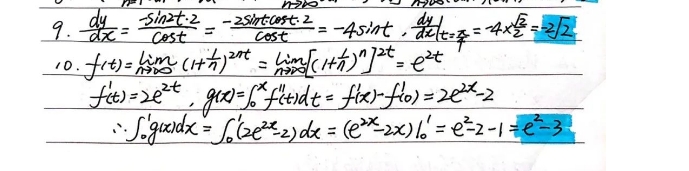 9. dy/dx = -sin2t·2/cost = -2sintcost·2/cost = -4sint , dy/dx|t=π/4 = -4×√2/2 = -2√2
10. f(t)=lim n→∞ (1+1/n)^2nt = lim n→∞ [(1+1/n)^n]^2t = e^2t
f'(t)=2e^2t , g(x)=∫₀ˣ f''(t)dt = f'(x)-f'(0) = 2e^2x-2
∴ ∫₀¹g(x)dx = ∫₀¹(2e^2x-2)dx = (e^2x-2x)|₀¹ = e²-2-1 = e²-3